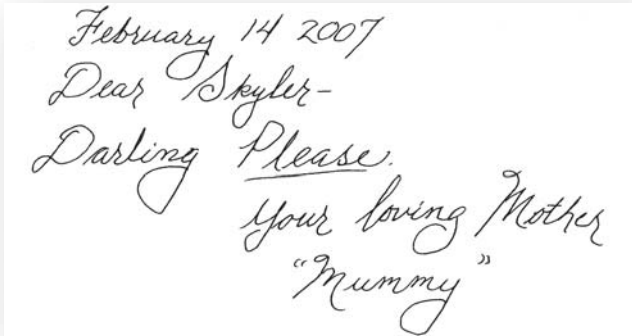 February 14 2007
Dear Skyler-
Darling Please.
Your loving Mother
"Mummy"